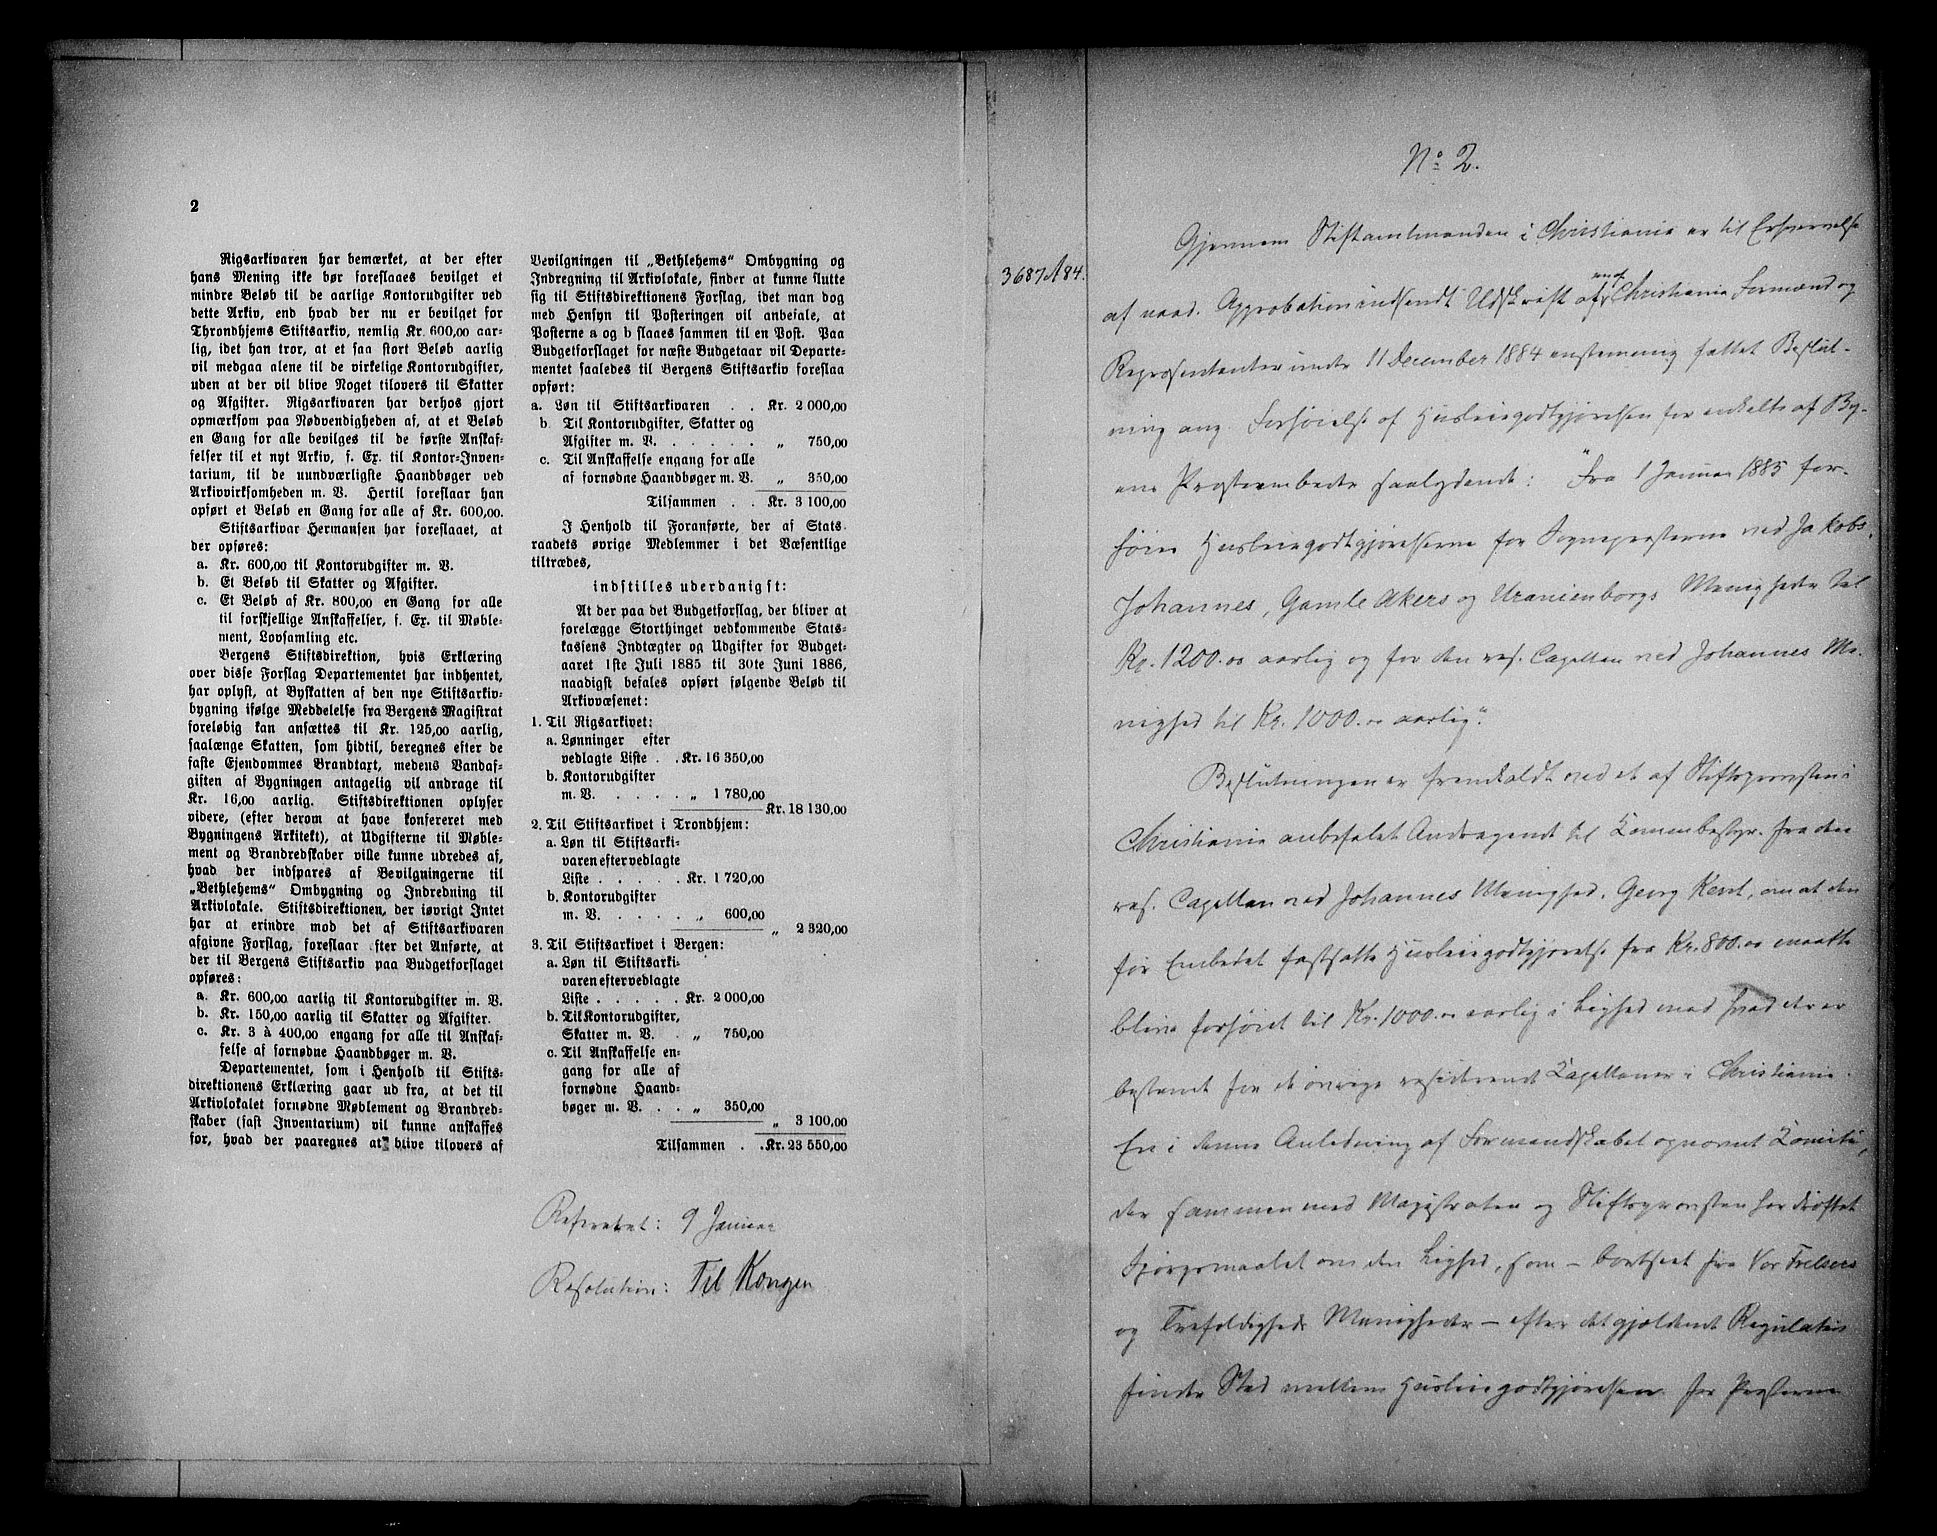 2
Rigsarkivaren har bemærket, at der efter
hans Mening ikke bør foreslaaes bevilget et
mindre Beløb til de aarlige Kontorudgifter ved
dette Arkiv, end hvad der nu er bevilget for
Throndhjems Stiftsarkiv, nemlig Kr. 600,00 aar-
lig, idet han tror, at et saa stort Beløb aarlig
vil medgaa alene til de virkelige Kontorudgifter,
uden at der vil blive Noget tilovers til Skatter
og Afgifter. Rigsarkivaren har derhos gjort
opmærksom paa Nødvendigheden af, at et Beløb
en Gang for alle bevilges til de første Anskaf-
felser til et nyt Arkiv, f. Ex. til Kontor-Inven-
tarium, til de uundværligste Haandbøger ved
Arkivvirksomheden m. V. Hertil foreslaar han
opført et Beløb en Gang for alle af Kr. 600,00.
Stiftsarkivar Hermansen har foreslaaet, at
der opføres:
a. Kr. 600,00 til Kontorudgifter m. V.
b. Et Beløb til Skatter og Afgifter.
c. Et Beløb af Kr. 800,00 en Gang for alle
til forskjellige Anskaffelser, f. Ex. til Møble-
ment, Lovsamling etc.
Bergens Stiftsdirektion, hvis Erklæring
over disse Forslag Departementet har indhentet,
har oplyst, at Byskatten af den nye Stiftsarkiv-
bygning ifølge Meddelelse fra Bergens Magistrat
foreløbig kan ansættes til Kr. 125,00 aarlig,
saalænge Skatten, som hidtil, beregnes efter de
faste Ejendommes Brandtaxt, medens Vandaf-
giften af Bygningen antagelig vil andrage til
Kr. 16,00 aarlig. Stiftsdirektionen oplyser
videre, (efter derom at have konfereret med
Bygningens Arkitekt), at Udgifterne til Møble-
ment og Brandredskaber ville kunne udredes af,
hvad der indspares af Bevilgningerne til
„Bethlehems“ Ombygning og Indredning til
Arkivlokale. Stiftsdirektionen, der iøvrigt Intet
har at erindre mod det af Stiftsarkivaren
afgivne Forslag, foreslaar efter det Anførte, at
der til Bergens Stiftsarkiv paa Budgetforslaget
opføres:
a. Kr. 600,00 aarlig til Kontorudgifter m. V.
b. Kr. 150,00 aarlig til Skatter og Afgifter.
c. Kr. 3 à 400,00 engang for alle til Anskaf-
felse af fornødne Haandbøger m. V.
Departementet, som i Henhold til Stifts-
direktionens Erklæring gaar ud fra, at det til
Arkivlokalet fornødne Møblement og Brandred-
skaber (fast Inventarium) vil kunne anskaffes
for, hvad der paaregnes at blive tilovers af
Bevilgningen til „Bethlehems“ Ombygning og
Indregning til Arkivlokale, finder at kunne slutte
sig til Stiftsdirektionens Forslag, idet man dog
med Hensyn til Posteringen vil anbefale, at
Posterne a og b slaaes sammen til en Post. Paa
Budgetforslaget for næste Budgetaar vil Departe-
mentet saaledes til Bergens Stiftsarkiv foreslaa
opført:
a. Løn til Stiftsarkivaren . . Kr. 2 000,00
b. Til Kontorudgifter, Skatter og
Afgifter m. V. . . . . . „ 750,00
c. Til Anskaffelse engang for alle
af fornødne Haandbøger m. V. „ 350,00
Tilsammen . . Kr. 3 100,00
I Henhold til Foranførte, der af Stats-
raadets øvrige Medlemmer i det Væsentlige
tiltrædes,
indstilles uderdanigst:
At der paa det Budgetforslag, der bliver at
forelægge Storthinget vedkommende Stats-
kassens Indtægter og Udgifter for Budget-
aaret 1ste Juli 1885 til 30te Juni 1886,
naadigst befales opført følgende Beløb til
Arkivvæsenet:
1. Til Rigsarkivet:
a. Lønninger efter
vedlagte Liste . . Kr. 16 350,00
b. Kontorudgifter
m. V. . . . . . „ 1 780,00
Kr. 18 130,00
2. Til Stiftsarkivet i Trondhjem:
a. Løn til Stiftsarki-
varen efter vedlagte
Liste . . . . . Kr. 1 720,00
b. Kontorudgifter
m. V. . . . . . „ 600,00
„ 2 320,00
3. Til Stiftsarkivet i Bergen:
a. Løn til Stiftsarki-
varen efter vedlagte
Liste . . . . . Kr. 2 000,00
b. Til Kontorudgifter,
Skatter m. V. . „ 750,00
c. Til Anskaffelse en-
gang for alle af
fornødne Haand-
bøger m. V. . . „ 350,00
„ 3 100,00
Tilsammen . . Kr. 23 550,00
Refereret: 9 Januar
Resolution: Til Kongen
No 2.
3687 A 84.
Gjennem Stiftamtmanden i Christiania er til Erhvervelse
af naad. Approbation indsendt Udskrift af en af Christiania Formænd og
Repræsentanter under 11 December 1884 enstemmig fattet Beslut-
ning ang. Forhøielse af Husleiegodtgjørelsen for enkelte af By-
ens Præsteembeder saalydende: "Fra 1 Januar 1885 for-
høies Husleiegodtgjørelserne for Sognepræsterne ved Jakobs,
Johannes, Gamle Akers og Uranienborgs Menigheder til
Kr. 1200.00 aarlig og for den res. Capellan ved Johannes Me-
nighed til Kr. 1000.00 aarlig".
Beslutningen er fremkaldt ved et af Stiftsprovsten i
Christiania anbefalet Andragende til Kommunebestyr. fra den
res. Capellan ved Johannes Menighed, Georg Kent, om at den
for Embedet fastsatte Husleiegodtgjørelse fra Kr. 800.00 maatte
blive forhøiet til Kr. 1000.00 aarlig i Lighed med hvad der er
bestemt for de øvrige residerende Kapellaner i Christiania.
En i denne Anledning af Formandskabet opnævnt Komite,
der sammen med Magistraten og Stiftsprovsten har drøftet
Spørgsmaalet om den Lighed, som – bortseet fra Vor Frelsers
og Trefoldigheds Menigheder – efter det gjældende Regulativ
finder Sted mellem Husleiegodtgjørelsen for Præsterne